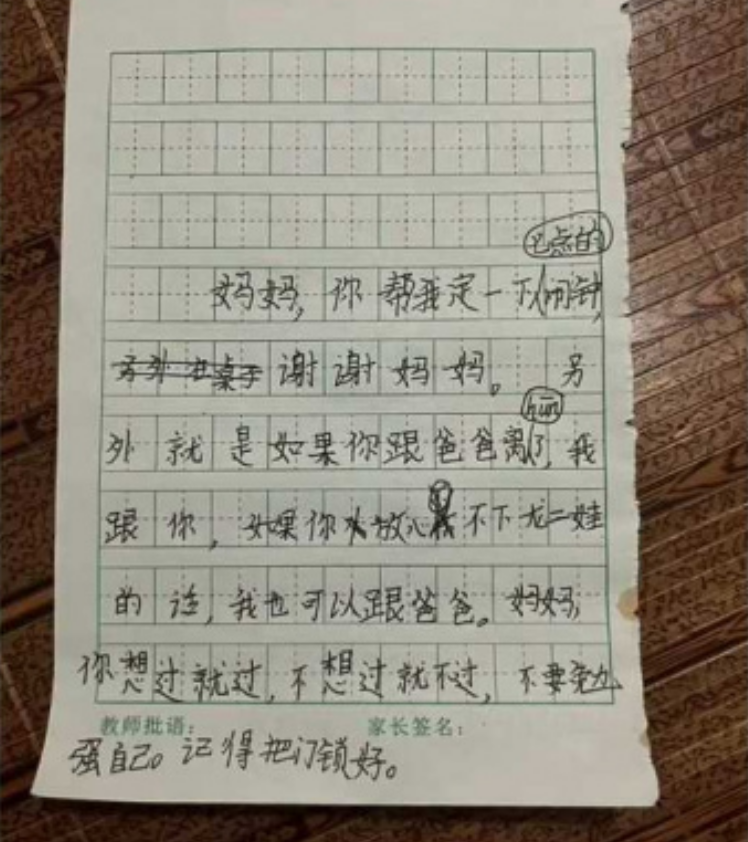 点的
妈妈,你帮我定一下闹钟,
另外在桌子谢谢妈妈。另
hūn
外就是如果你跟爸爸离了,我
跟你,如果你放心不下龙二娃
的话,我也可以跟爸爸。妈妈,
你想过就过,不想过就不过,不要勉
教师批语: 家长签名:
强自己。记得把门锁好。